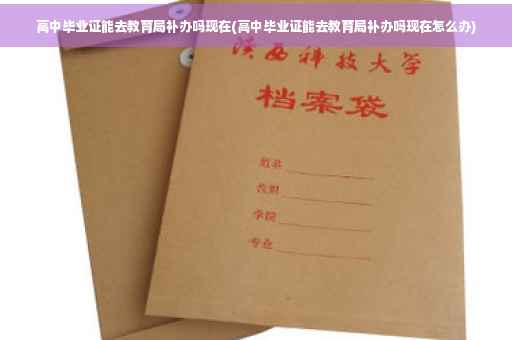 高中毕业证能去教育局补办吗现在(高中毕业证能去教育局补办吗现在怎么办)
陕西科技大学
档案袋
姓名
学院
专业